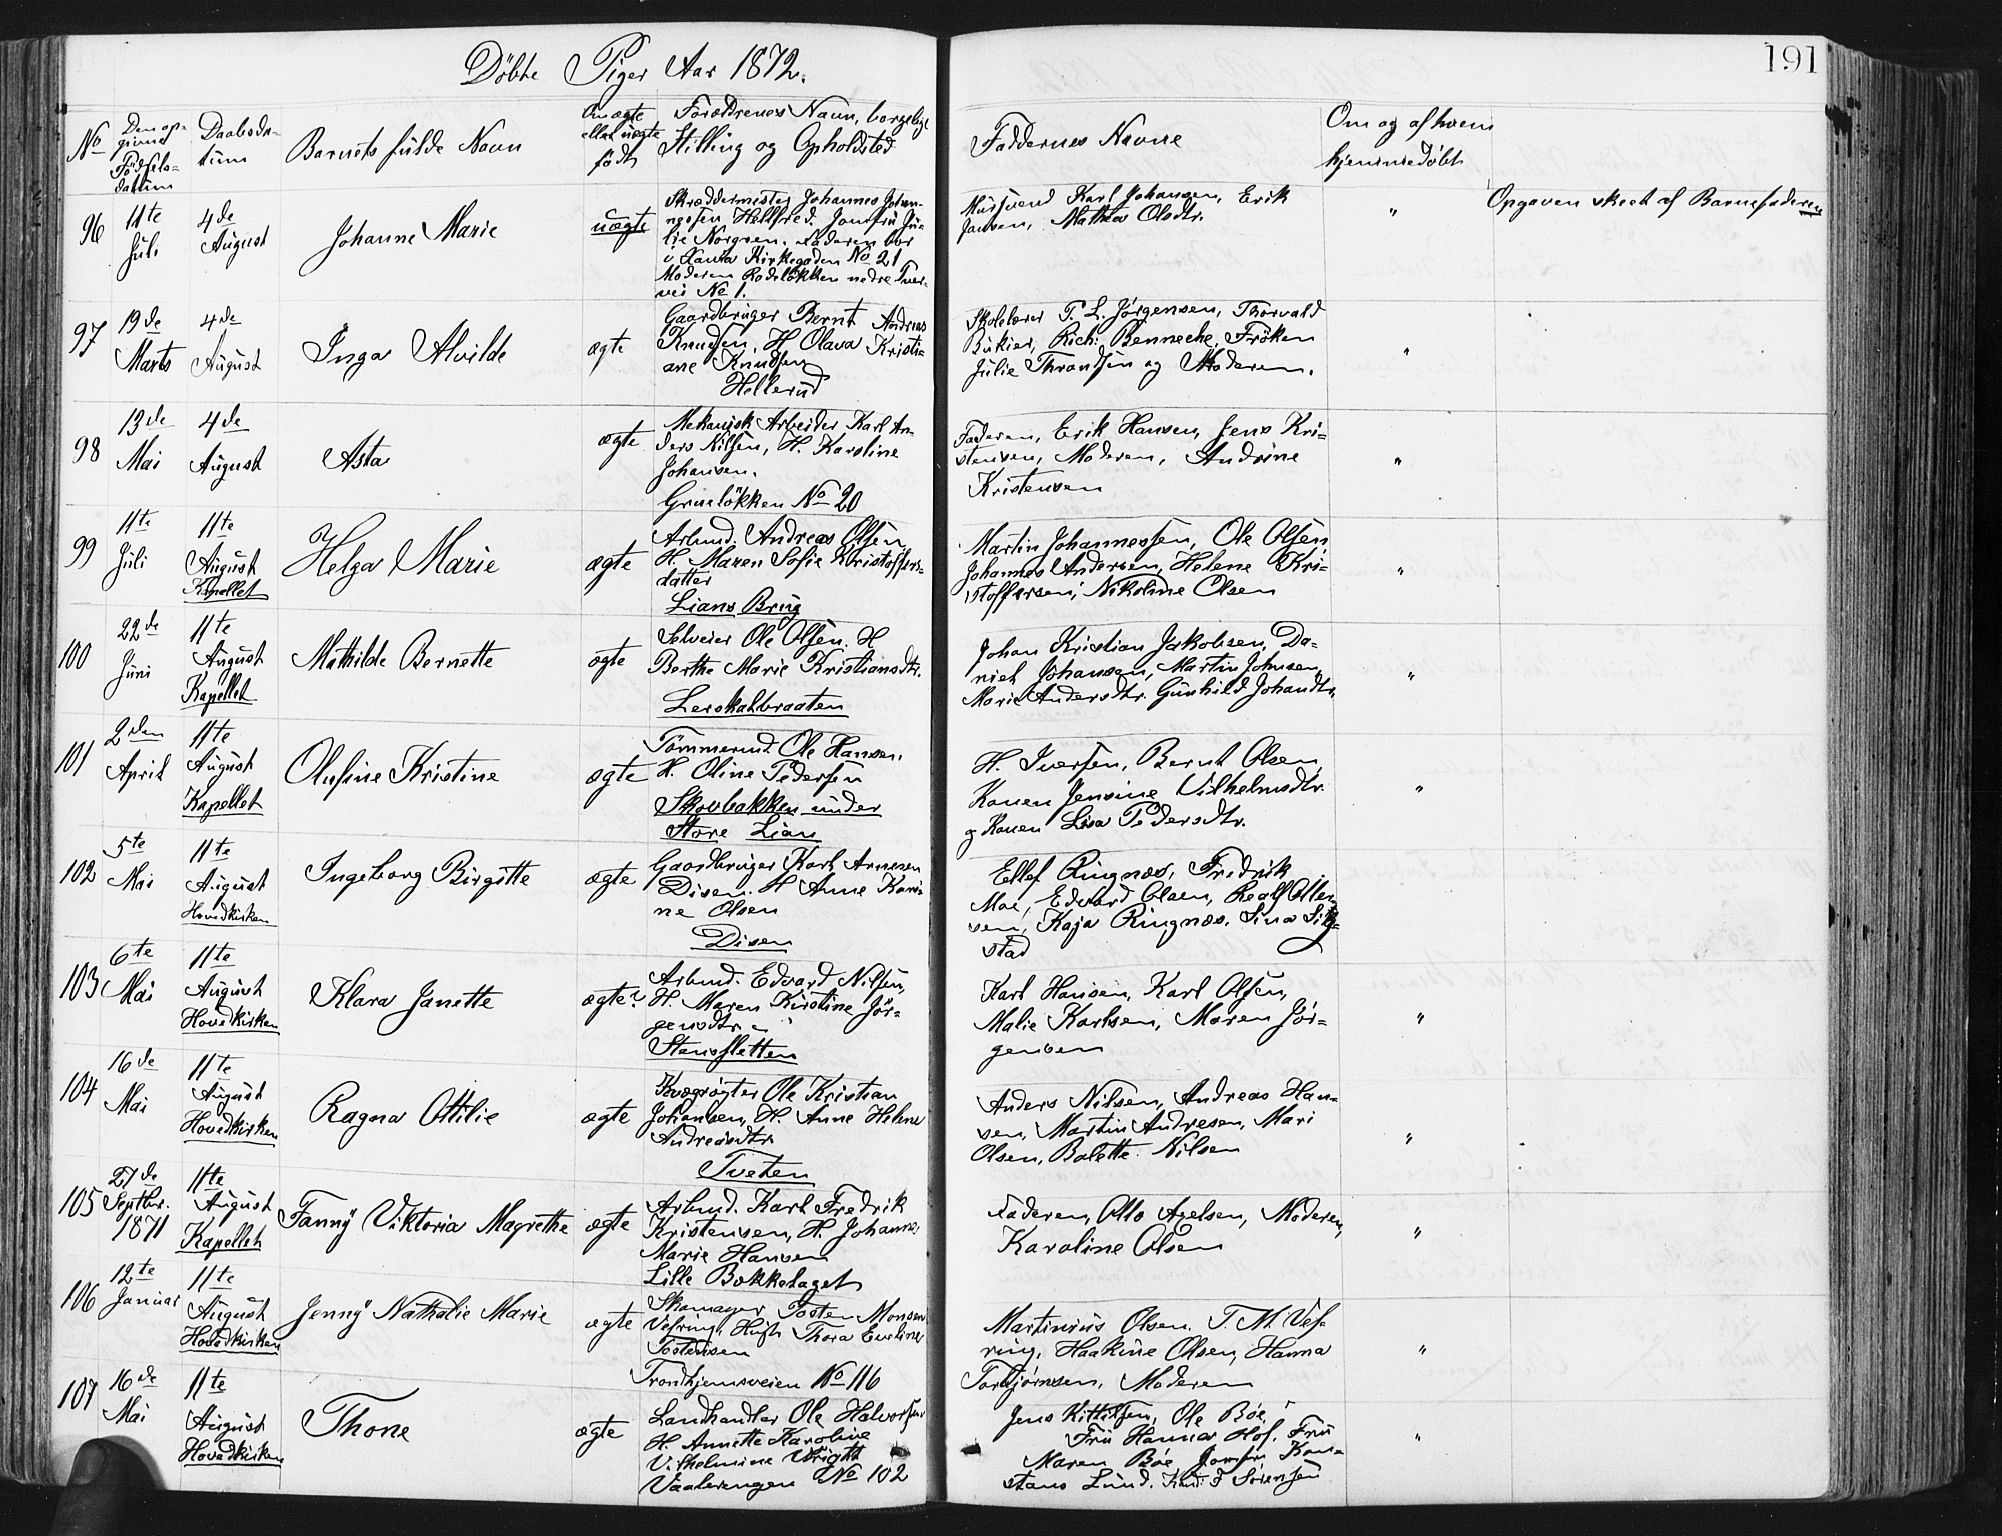 Döbte Piger Aar 1872.
191
No
Den opgivne Födselsdatum
Daabsdatum
Barnets fulde Navn
Om ægte eller uægte född
Forældrenes Navn, borgelige Stilling og Opholdsted
Faddernes Navne
Om og af hvem hjemmedöbt
96
11te Juli
4de August
Johanne Marie
uægte
Skræddermester Johannes Johan-
nessen Hellfred. Jomfru Ju-
lie Norgren. Faderen bor
Kirkegaden No 21
Moderen Rodeløkken nedre Tver-
vei No 1.
Mursvend Karl Johansen, Erik
Jansen, Mathea Olsdtr.
"
Opgaven skeet af Barnefaderen
97
19de Marts
4de August
Inga Alvilde
ægte
Gaardbruger Bernt Andreas
Knudsen, H. Olava Kristi-
ane Knudsen
Hellerud
Skolelærer T. L. Jørgensen, Thorvald
Rich. Benneche, Fröken
Julie Throndsen og Moderen.
"
98
13de Mai
4de August
Asta
ægte
Mekanisk Arbeider Karl An-
ders Nilsen, H. Karoline
Johansen.
Grueløkken No 20
Faderen, Erik Hansen, Jens Kri-
stensen, Moderen, Andrine
Kristensen
"
99
11te Juli
11te August
Kapellet
Helga Marie
ægte
Arbmd. Andreas Olsen
H. Maren Sofie Kristoffers-
datter
Lians Brug
Martin Johannessen, Ole Olsen
Johannes Andersen, Helene Kri-
stoffersen, Nikoline Olsen
"
100
22de Juni
11te August
Kapellet
Mathilde Bernette
ægte
Selveier Ole Olsen. H
Berthe Marie Kristiansdtr.
Lerskalbraaten
Johan Kristian Jakobsen, Da-
niel Johansen, Martin Johnsen,
Marie Andersdtr. Gunhild Johandtr.
"
101
2den April
11te August
Kapellet
Olufine Kristine
ægte
Tømmermd. Ole Hansen.
H. Oline Pedersen
Skovbakken under
Store Lian
H. Iversen, Bernt Olsen,
Konen Jensine Vilhelmsdtr.
og Konen Lisa Pedersdtr.
"
102
5te Mai
11te August
Hovedkirken
Ingeborg Birgitte
ægte
Gaardbruger Karl Arnesen
Disen. H Anne Kari-
ne Olsen
Disen
Ellef Ringnæs, Fredrik
Moe, Edvard Olsen, Realf Otte-
sen, Kaja Ringnæs.
stad
103
6te Mai
11te August
Hovedkirken
Klara Janette
ægte?
Arbmd. Edvard Nilsen,
H. Maren Kirstine Jör-
gensdtr.
Stensletten
Karl Hansen, Karl Olsen,
Malie Karlsen, Maren Jör-
gensen
"
104
16de Mai
11te August
Hovedkirken
Ragna Ottilie
ægte
Kvægrögter Ole Kristian
Johansen, H. Anne Helene
Andreasdtr.
Tveten
Anders Nilsen, Andreas Han-
sen, Martin Andresen, Mari
Olsen, Bolette Nilsen
"
105
27de Septbr. 1871
11te August
Kapellet
Fanny Viktoria Magrethe
ægte
Arbmd. Karl Fredrik
Kristensen, H. Johanne
Marie Hansen
Lille Bakkehaget
Faderen, Otto Axelsen, Moderen,
Karoline Olsen
"
106
12te Januar
11te August
Hovedkirken
Jenny Nathalie Marie
ægte
Skomager Tosten Monsen
Vefring, Hust. Thora Eveline
Tostensen
Trondhjemsveien No 116
Martinius Olsen. T. M. Vef-
ring, Haakine Olsen, Hanna
Torbjørnsen, Moderen
"
107
16de Mai
11te August
Hovedkirken
Thone
ægte
Landhandler Ole Halvorsen
H. Annette Karoline
Vilhelmine Wright
Vaalerengen No 102
Jens Kittilsen, Ole Böe,
Fru Hanna Hof. Fru
Maren Böe Jomfru Kon-
stans Lund. Sørensen
"